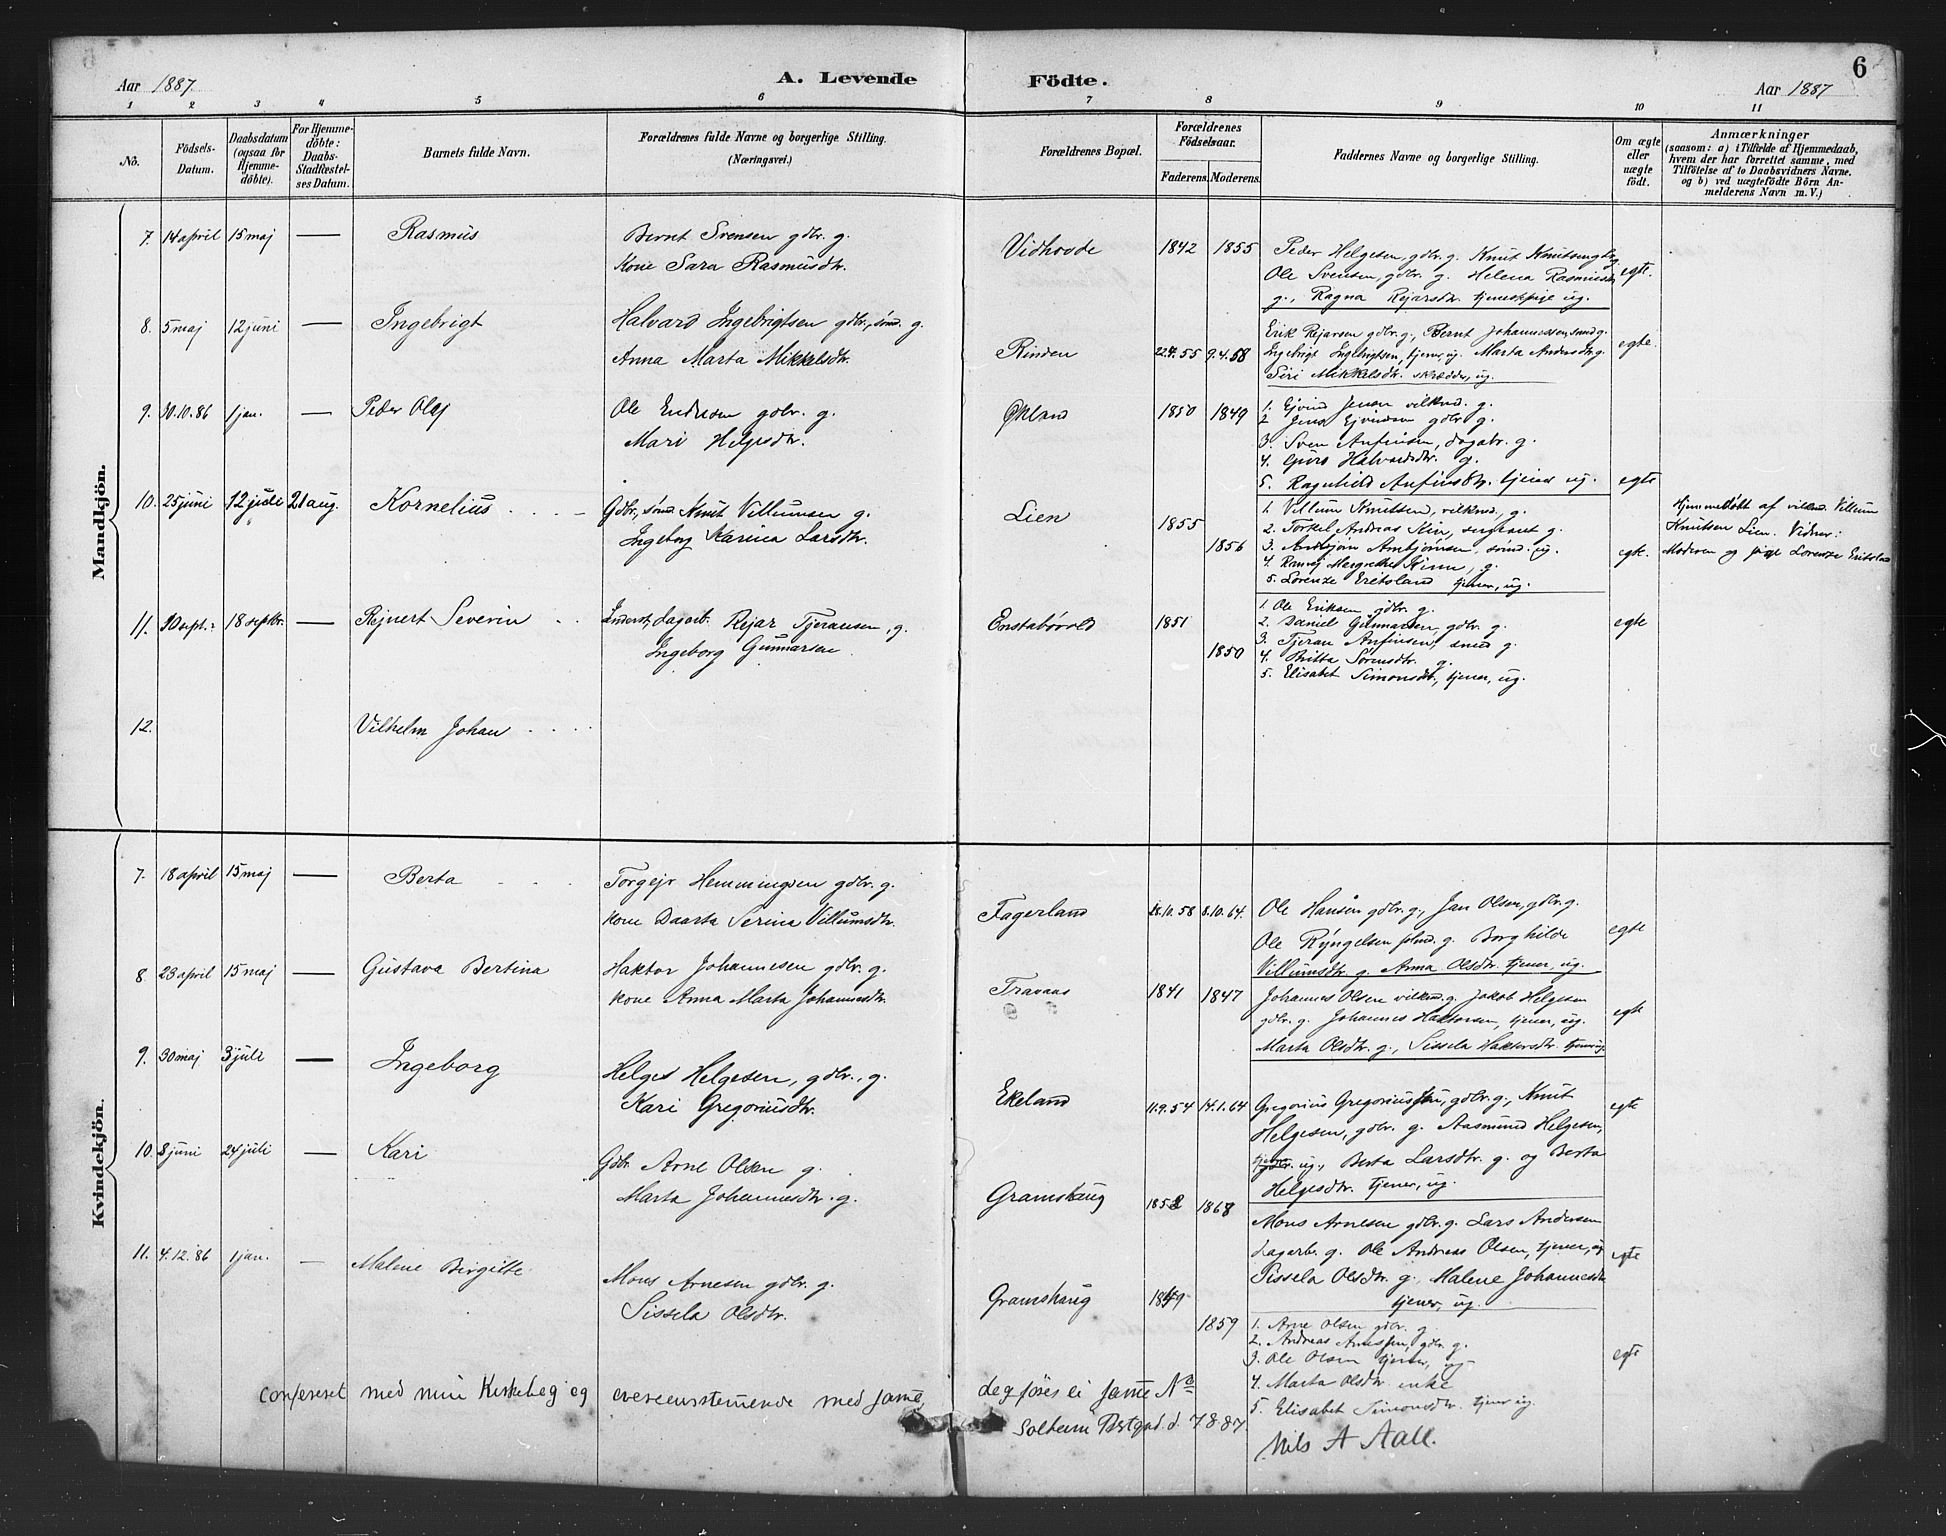 6
Aar 1887
A. Levende
Födte.
Aar 1887
1 2 3 4 5 6 7 8 9 10 11
No.
Födsels-
Datum.
Daabsdatum
(ogsaa for
Hjemme-
döbte).
For Hjemme-
döbte:
Daabs-
Stadfæstel-
ses Datum.
Barnets fulde Navn.
Forældrenes fulde Navne og borgerlige Stilling.
(Næringsvei.)
Forældrenes Bopæl.
Forældrenes
Födselsaar.
Faderens. Moderens.
Faddernes Navne og borgerlige Stilling.
Om ægte
eller
uægte
födt.
Anmærkninger
(saasom: a) i Tilfælde af Hjemmedaab,
hvem der har forrettet samme, med
Tilföielse af to Daabsvidners Navne.
og b) ved uægtefödte Börn An-
melderens Navn m. V.)
Mandkjön.
7. 14 april 15 maj — Rasmus
Bernt Svensen gdbr. g.
Kone Sara Rasmusdtr.
Vidhovde 1842 1855
Peder Helgesen, gdbr. g. Knut Knutsen
Ole Svensen, gdbr. g. Helena Rasmusdtr
g., Ragna Rejarsdtr. tjenestpige ug.
egte.
8. 5 maj 12 juni — Ingebrigt
Halvard Ingebrigtsen gdbr., smd. g.
Anna Marta Mikkelsdtr.
Rinden 22.4.55 9.4.58
Erik Rejarsen gdbr. g., Bernt Johannessen, smd g.
Ingebrigt Ingebrigtsen, tjener, ug. Marta Andersdtr g.
Siri Mikkelsdtr. skrædder, ug.
egte.
9. 30.10.86 1 jan. — Peder Olaj
Ole Endresen gdbr. g.
Mari Helgesdtr.
Økland 1850 1849
1. Ejvind Jensen vilkmd. g.
2 Jens Ejvindsen gdbr. g.
3. Sven Anfinsen, dagabr. g.
4. Guro Halvardsdtr. g.
5. Ragnhild Anfinsdtr. tjener ug.
egte
10. 25 juni 12 juli 21 aug. Kornelius
Gdbr., smd. Knut Villumsen g.
Ingeborg Karina Larsdtr.
Lien 1855
1856
1. Villum Knutsen, vilkmd., g.
2. Torkel Andreas Kin, sergeant g.
3. Ambjørn Ambjørnsen, smd. ug.
4. Ranvej Margrethe Kinn, g.
5. Lorenze Eritsland tjener, ug.
egte.
Hjemmedøbt af vilkmd. Villum
Knutsen Lien. Vidner:
Moderen og pige Lorenze Eritsland
11. 18 septbr. — Rejnert Severin
Inderst, Dagarb. Rejar Tjeransen, g.
Ingeborg Gunnarsen
Enstabøvold 1851
1850
1. Ole Eriksen gdbr. g.
2. Daniel Gunnarsen, gdbr. g.
3. Tjeran Anfinsen, smd g.
4. Britta Sørensdtr. g.
5. Elisabet Simonsdtr., tjener, ug.
egte
12. Vilhelm Johan
Kvindekjön.
7. 18 april 15 maj — Berta
Torgejr Hemmingsen gdbr. g.
kone Daarta Serina Villumsdtr.
Fagerland 28.10.58 8.10.64.
Ole Hansen gdbr. g., Jan Olsen, gdbr. g.
Ole Ryngelsen g. Borghilde
Villumsdtr. g. Anna Olsdtr. tjener, ug.
egte
8 23 april 15 maj — Gustava Bertina
Haktor Johannesen gdbr. g.
kone Anna Marta Johannesdtr.
Travaas 1841 1847
Johannes Olsen vilkmd. g. Jakob Helgesen
gdbr. g. Johannes Haktorsen, tjener, ug.
Marta Olsdtr. g., Sissela Haktorsdtr. tjener ug.
egte
9. 30 maj 3 juli — Ingeborg
Helges Helgesen, gdbr., g.
Kari Gregoriusdtr.
Ekeland 11.9.54 14.1.64
Gregorius Gregoriussen, gdbr. g., Knut
Helgesen, gdbr. g. Aasmund Helgesen,
tjener ug., Berta Larsdtr. g. og Berta
Helgesdtr. tjener, ug.
egte
10. 8 juni 24 juli — Kari
Gdbr. Arne Olsen g.
Marta Johannesdtr. g.
Gramshaug 1852 1868
Mons Arnesen gdbr. g. Lars Andersen
Dagarb. g. Ole Andreas Olsen, tjener, ug
Sissela Olsdtr. g., Malene Johannesdtr
tjener, ug.
egte
11. 4.12.86 1 jan. — Malene Birgitte
Mons Arnesen gdbr. g.
Sissela Olsdtr.
Gramshaug 1849
1859
1. Arne Olsen gdbr. g.
2. Andreas Arnessen, gdbr. g.
3. Ole Olsen tjener, ug
4. Marta Olsdtr. enke
5. Elisabet Simonsdtr. tjener ug.
egte
confereret med min Kirkebog og overeensstemende med samme,
Solheim Prstgrd. d. 7 8 87.
Nils A Aall.